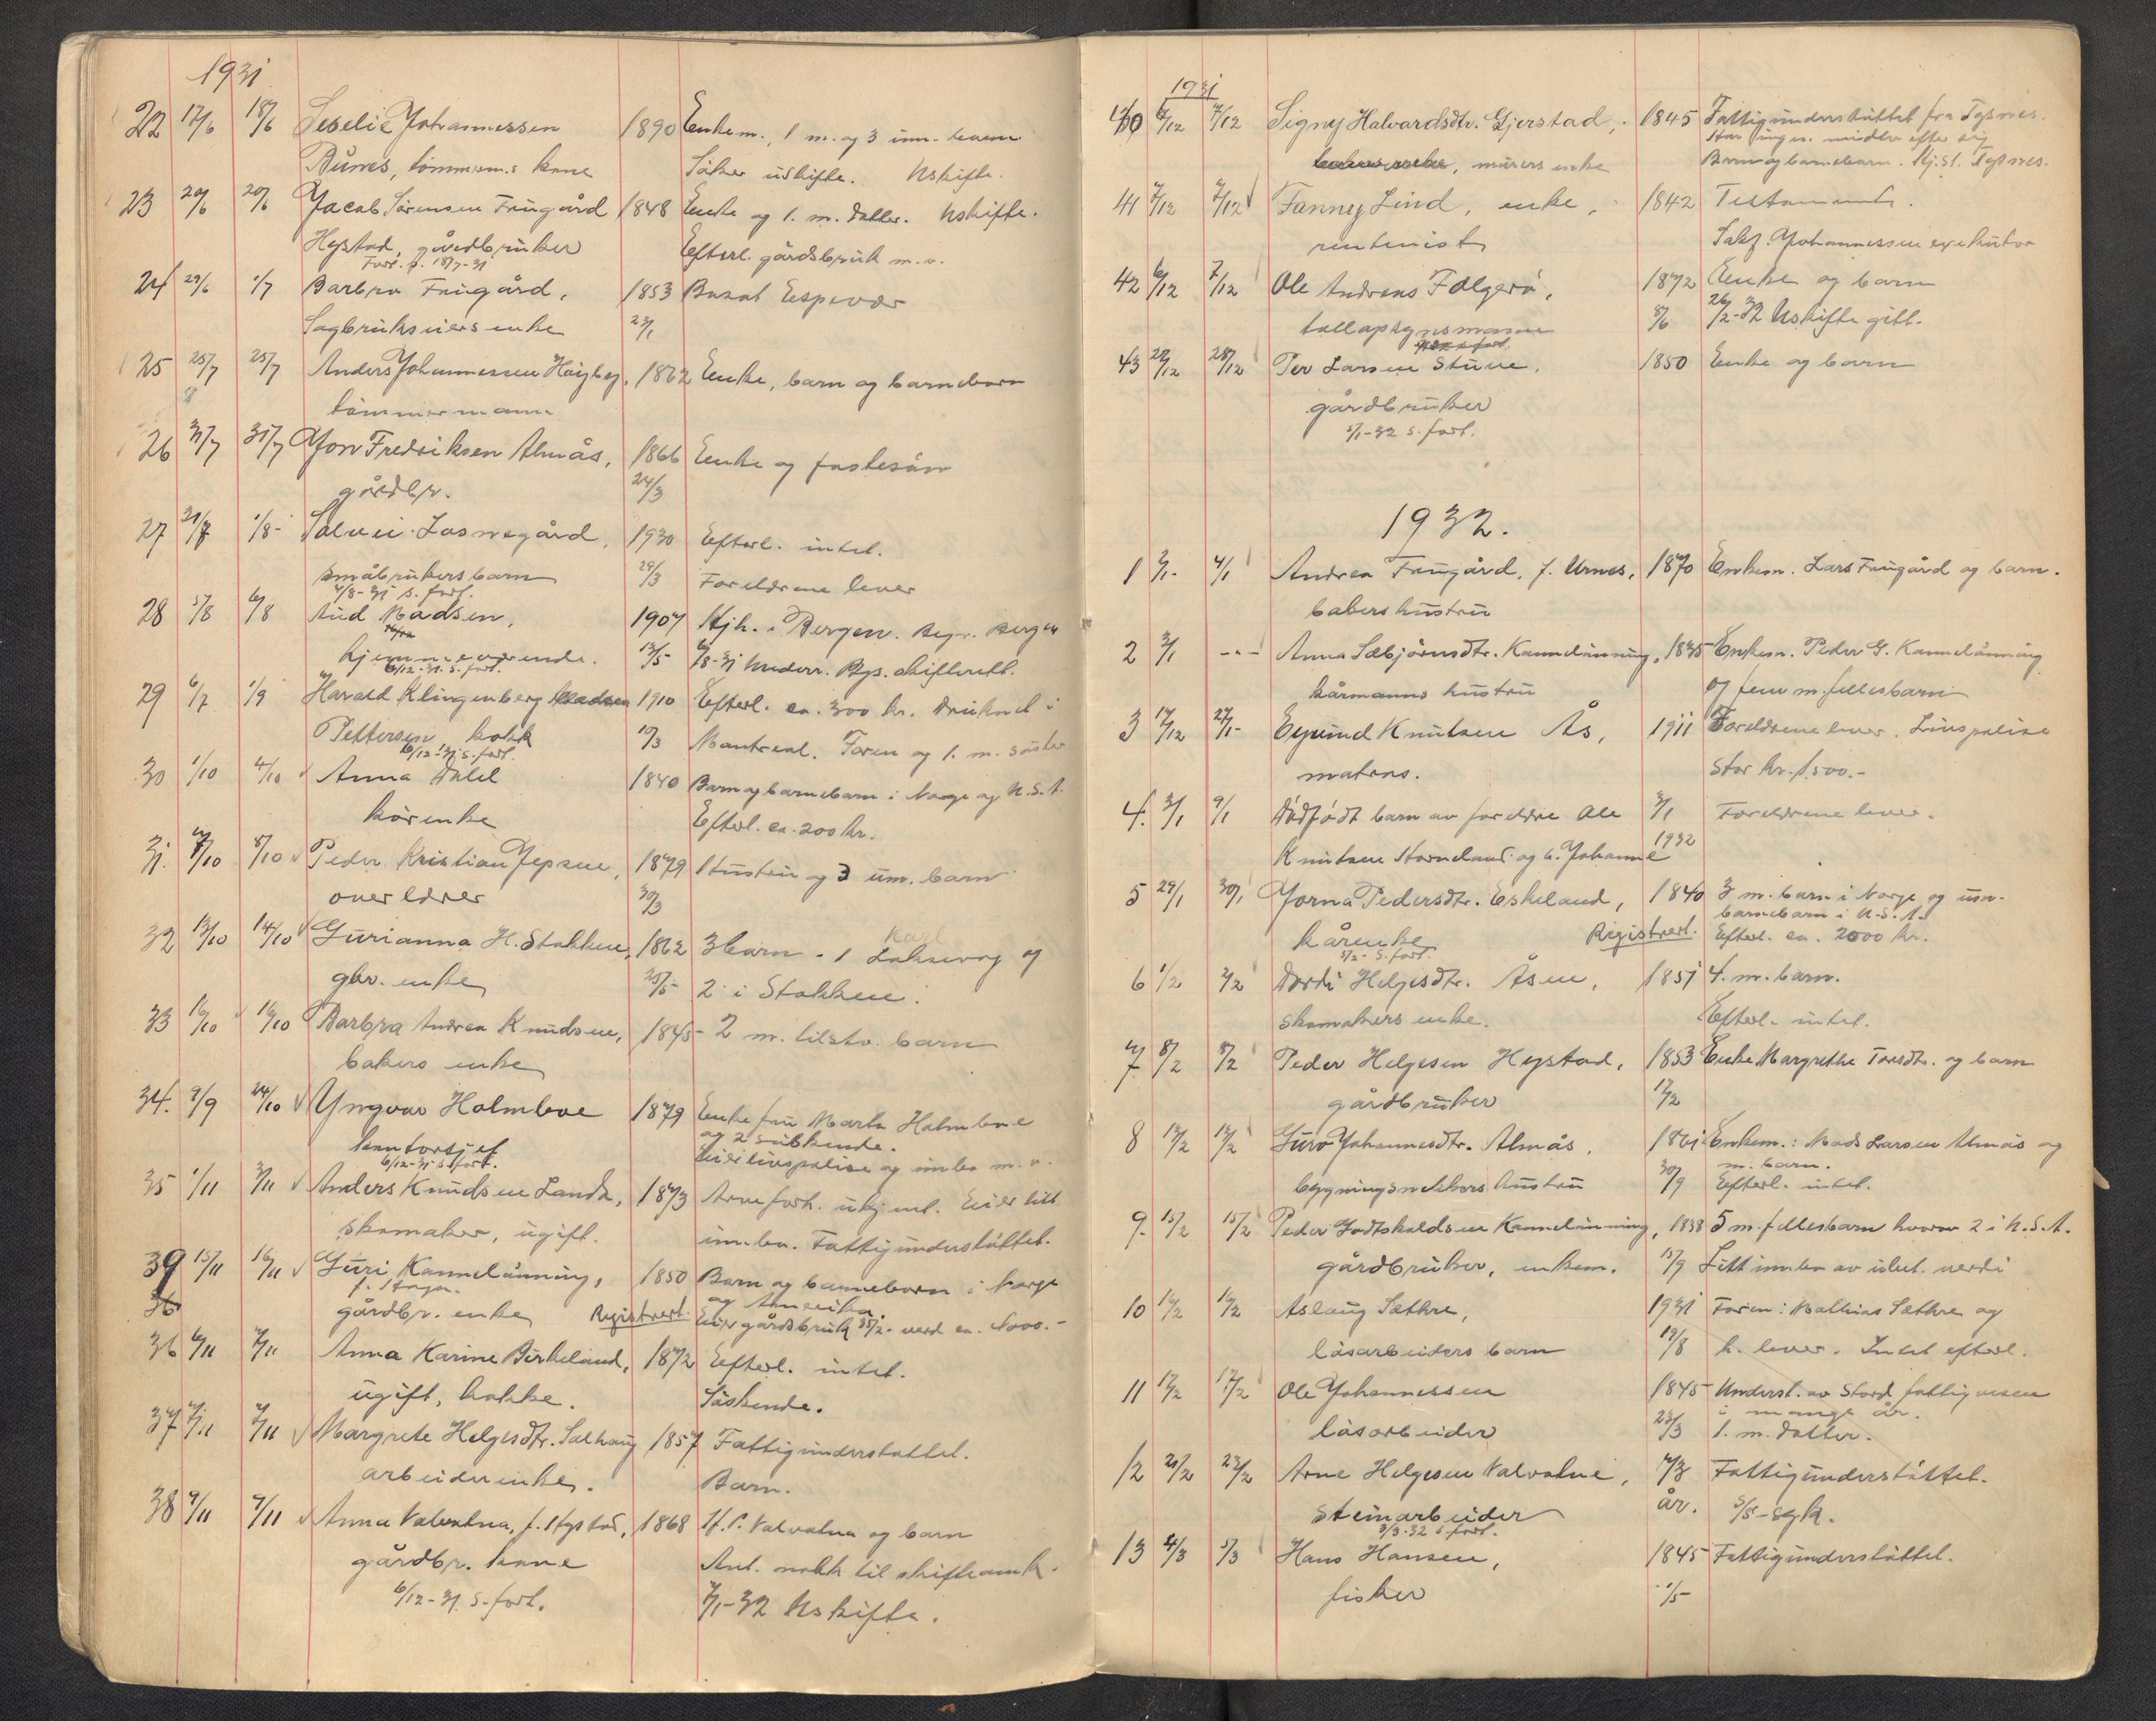 1931
22 17/6 18/6 Seselie Johannessen 1890 Enkem., 1 m. og 3 um. barn
Rünes, tömmerm.s kone Söker uskifte. Uskifte.
23 20/6 20/6 Jacob Sörensen Frugård 1848 Enke og 1. m. datter. Uskifte.
Hystad, gårdbruker Efterl. gårdsbruk m.v.
Forl. p. 18/7-31
24 29/6 1/7 Barbra Frugård, 1853 Busat Espevær
Sagbrukseiers enke 23/1
25 25/7 25/7 Anders Johannessen Høgberg, 1862 Enke, barn og barnebarn
tömmermann
26 31/7 31/7 Jon Fredriksen Almås, 1866 Enke og fostesön
gårdbr. 24/3
27 31/7 1/8- Solvei Losnegård, 1930 Efterl. intet.
småbrukers barn 29/3 Foreldrene lever
4/8-31 s. forl.
28 5/8 6/8 Aud Madsen, 1907 Sjh. i Bergen. Begr. Bergen
hjemmeværende. 13/5 6/8-31 Underr. Bgs. skifterett.
6/12-31. s. forl.
29 6/7 1/9 Harald Klingenberg Madsen 1910 Efterl. ca. 300 kr. Druknet i
Pettersen, kokk 10/3 Montreal. Foren og 1. m. söster
6/12-31 s. forl.
30 1/10 4/10 Anna Dahl 1840 Barn og barnebarn i Norge og U.S.A.
kårenke Efterl. ca. 200 kr.
31. 7/10 8/10 Peder Kristian Jepsen, 1879 Hustru og 3 um. barn
overlærer 30/3
32 13/10 14/10 Gurianna H. Stokken, 1862 3 barn. 1 Laksevåg og
Karl
gbr. enke 25/5- 2 i Stokken.
33 16/10 16/10 Barbra Andrea Knudsen, 1845- 2 m. tilstv. barn
bakers enke
34. 9/9 24/10 Yngvar Holmboe 1879 Enke fru Marta Holmboe
og 2 söskende.
kontorsjef Eier livspolise og innbo m.v.
6/12-31 s. forl.
35 1/11 3/11 Anders Knudsen Landa, 1873 Arveforh. ukjent. Eier litt
skomaker, ugift. innbo. Fattigunderstöttet.
39 15/11 16/11 Guri Kannelönning, 1850 Barn og barnebarn i Norge
36 f. Haga. og Amerika.
gårdbr. enke Registrert. Eier gårdsbruk 25/2- verd ca. 1000.-
36 6/11 7/11 Anna Karine Birkeland, 1872 Efterl. intet.
ugift, kokke. Söskende.
37 7/11 7/11 Margrete Helgesdtr. Salhaug 1857 Fattigunderstöttet.
arbeiderenke. Barn.
38 9/11 9/11 Anna Valvatna, f. Hystad, 1868 H. P. Valvatna og barn
gårdbr. kone Ant. nokk til skifteomk.
6/12-31. s. forl. 7/1-32 Uskifte.
1931
40 6/12 7/12 Signy Halvardsdtr. Gjerstad, 1845 Fattigunderstöttet fra Tysnes.
Har ingen midler efter sig
murers enke Barn og barnebarn. Hj.st. Tysnes.
41 7/12 7/12 Fanny Lind, enke, 1842 Testament.
rentenist Sakf. Johannessen exekutor
42 6/12 7/12 Ole Andreas Folgerö, 1872 Enke og barn
tollopsynsmann 8/6 26/2-32 Uskifte gitt.
43 28/12 28/12 Per Larsen Stüve, 1850 Enke og barn
gårdbruker
5/1-32 s. forl.
1932.
1 2/1- 4/1 Andrea Frugård, f. Urnes, 1870 Enkem. Lars Frugård og barn.
bakers hustru
2 3/1 -"- Anna Sæbjörnsdtr. Kannelönning, 1845 Enkem. Peder G. Kannelönning
kårmanns hustru og fem m. fellesbarn
3 14/12 27/1- Eyvind Knutsen Ås, 1911 Foreldrene lever. Livspolise
matros. stor kr. 1500.-
4. 3/1 9/1 Dödfödt barn av foreldre Ole 3/1 Foreldrene lever.
Knutsen Horneland og h. Johanne 1932
5 29/1 30/1 Jorna Pedersdtr. Eskeland, 1840 3 m. barn i Norge og um.
barnebarn i U.S.A.
kårenke Registrert. Efterl. ca. 2000 kr.
5/2- s. forl.
6 1/2 2/2 Dordi Helgesdtr. Åsen, 1851 4. m. barn.
skomakers enke. Efterl. intet.
7 8/2 8/2 Peder Helgesen Hystad, 1853 Enke Margrethe Toresdtr. og barn
gårdbruker 17/2
8 13/2 13/2 Guro Johannesdtr. Almås, 1861 Enkem.: Mads Larsen Almås og
m. barn.
bygningssnekkers hustru 30/9 Efterl. intet.
9. 15/2 15/2 Peder Godtskaldsen Kannelönning, 1838 5 m. fellesbarn hvorav 2 i U.S.A.
gårdbruker, enkem. 15/9 Litt innbo av ubet. verdi
10 16/2 16/2 Aslaug Sæthre, 1931 Foren: Mathias Sæthre og
lösarbeiders barn 19/8 h. lever. Intet efterl.
11 17/2 17/2 Ole Johannessen 1845- Underst. av Stord fattigvesen
i mange år.
lösarbeider 23/3 1. m. datter.
12 21/2 23/2 Arne Helgesen Valvatne, 73 Fattigunderstöttet.
steinarbeider år. 5/5-sgk.
3/3-32 s. forl.
13 4/3 5/3 Hans Hansen, 1845 Fattigunderstöttet.
fisker 1/5-